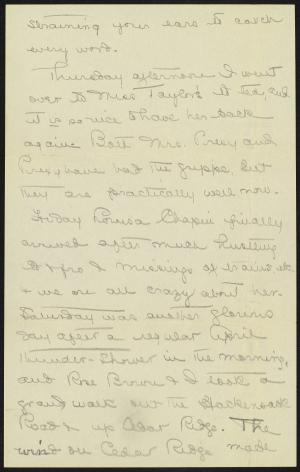 straining your ears to catch
every word.
Thursday afternoon I went
over to Miss Taylor's to tea, and
it is so nice to have her back
again. Both Mrs. Prexy and
Prexy have had the grippe, but
they are practically well now.
Friday Louisa Chapin finally
arrived after much hustling
to & fro & missings of trains etc.
& we are all crazy about her.
Saturday was another glorious
day after a regular April
thunder-shower in the morning,
and Rose Brown & I took a
grand walk out the Hackensack
Road & up Cedar Ridge. The
wind on Cedar Ridge made